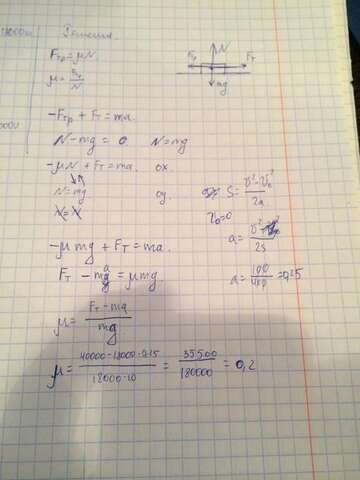 Решение
Fтр = μN
μ = Fтр/N
Fтр N Fт
mg
-Fтр + Fт = ma.
N - mg = 0 N = mg
-μN + Fт = ma. ox
N = mg oy. S = (v² - v₀²)/2a
v₀ = 0
a = v²/2s
-μmg + Fт = ma.
Fт - ma = μmg. a = 100/400 = 0,25
μ = (Fт - ma)/mg
μ = (40000 - 18000 · 0,25)/(18000 · 10) = 35500/180000 = 0,2